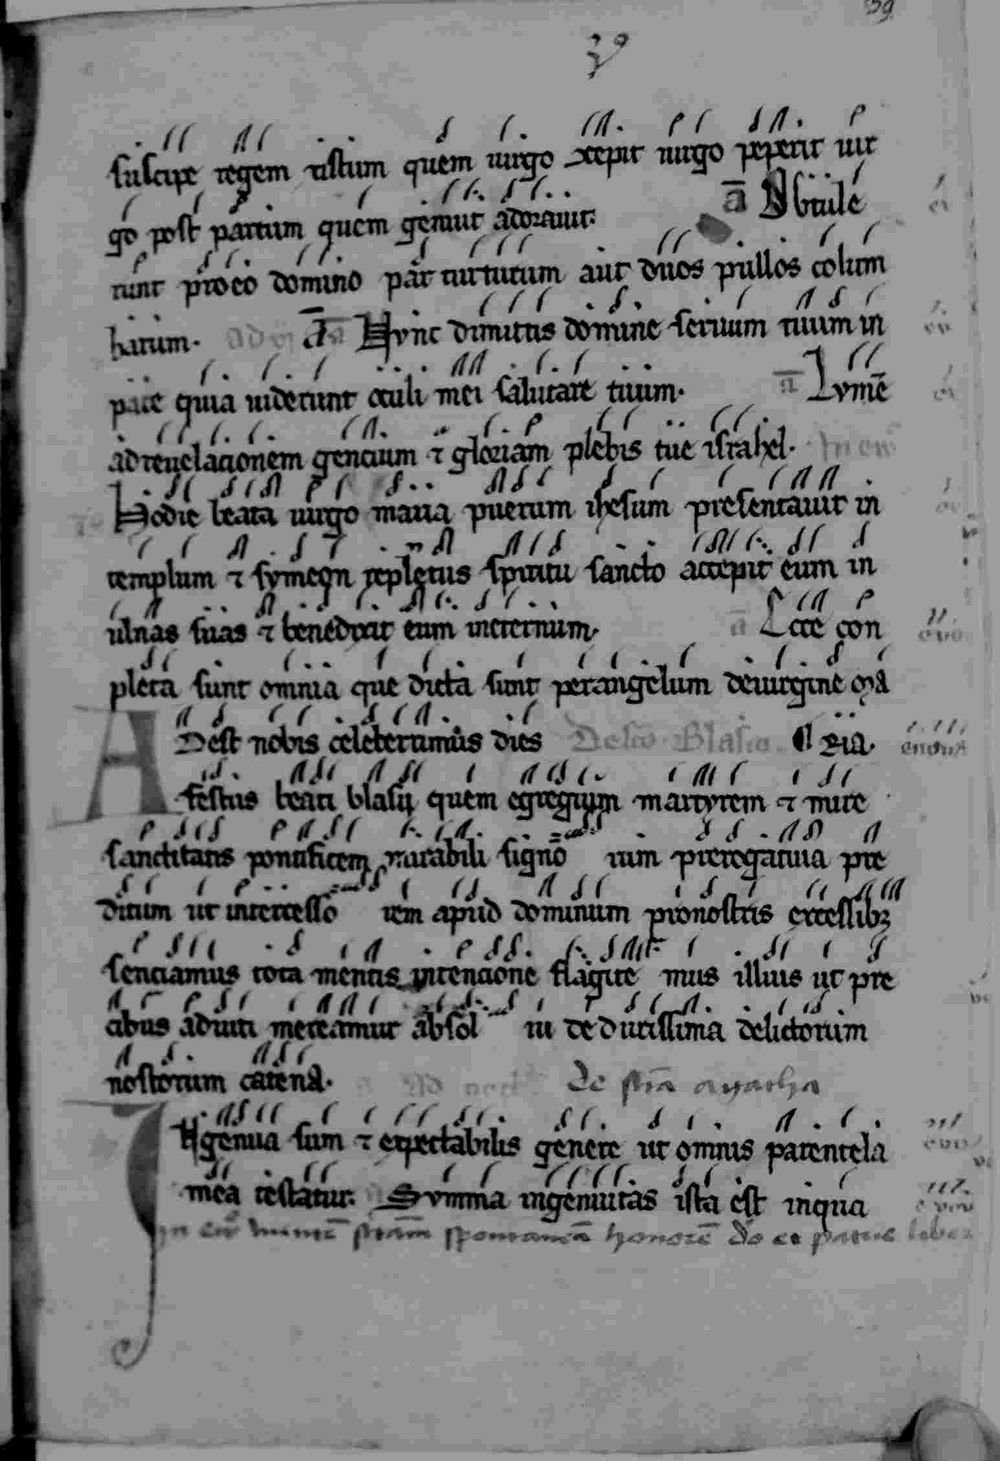 39
suscipe regem xpistum quem uirgo concepit uirgo peperit uir
go post partum quem genuit adorauit. a Obtule
runt pro eo domino par turturum aut duos pullos colum
barum. a Nvnc dimittis domine seruum tuum in
pace quia uiderunt oculi mei salutare tuum. a Lvmē
ad reuelacionem gencium ⁊ gloriam plebis tue israhel. In ew
Hodie beata uirgo maria puerum ihesum presentauit in
templum ⁊ symeon repletus spiritu sancto accepit eum in
ulnas suas ⁊ benedixit eum ineternum. a Ecce con
pleta sunt omnia que dicta sunt perangelum deuirgine Ma
ADest nobis celeberrimus dies De sco Blasio ria.
festus beati blasij quem egregium martyrem ⁊ mire
sanctitatis pontificem mirabili signo rum prerogatiua pre
ditum ut intercesso rem apud dominum pronostris excessibꝫ
senciamus tota mentis intencione flagite mus illius ut pre
cibus adiuti mereamur absol ui de durissima delictorum
nostrorum catena. De scta agatha
INgenua sum ⁊ expectabilis genere ut omnis parentela
mea testatur. Svmma ingenuitas ista est inqua